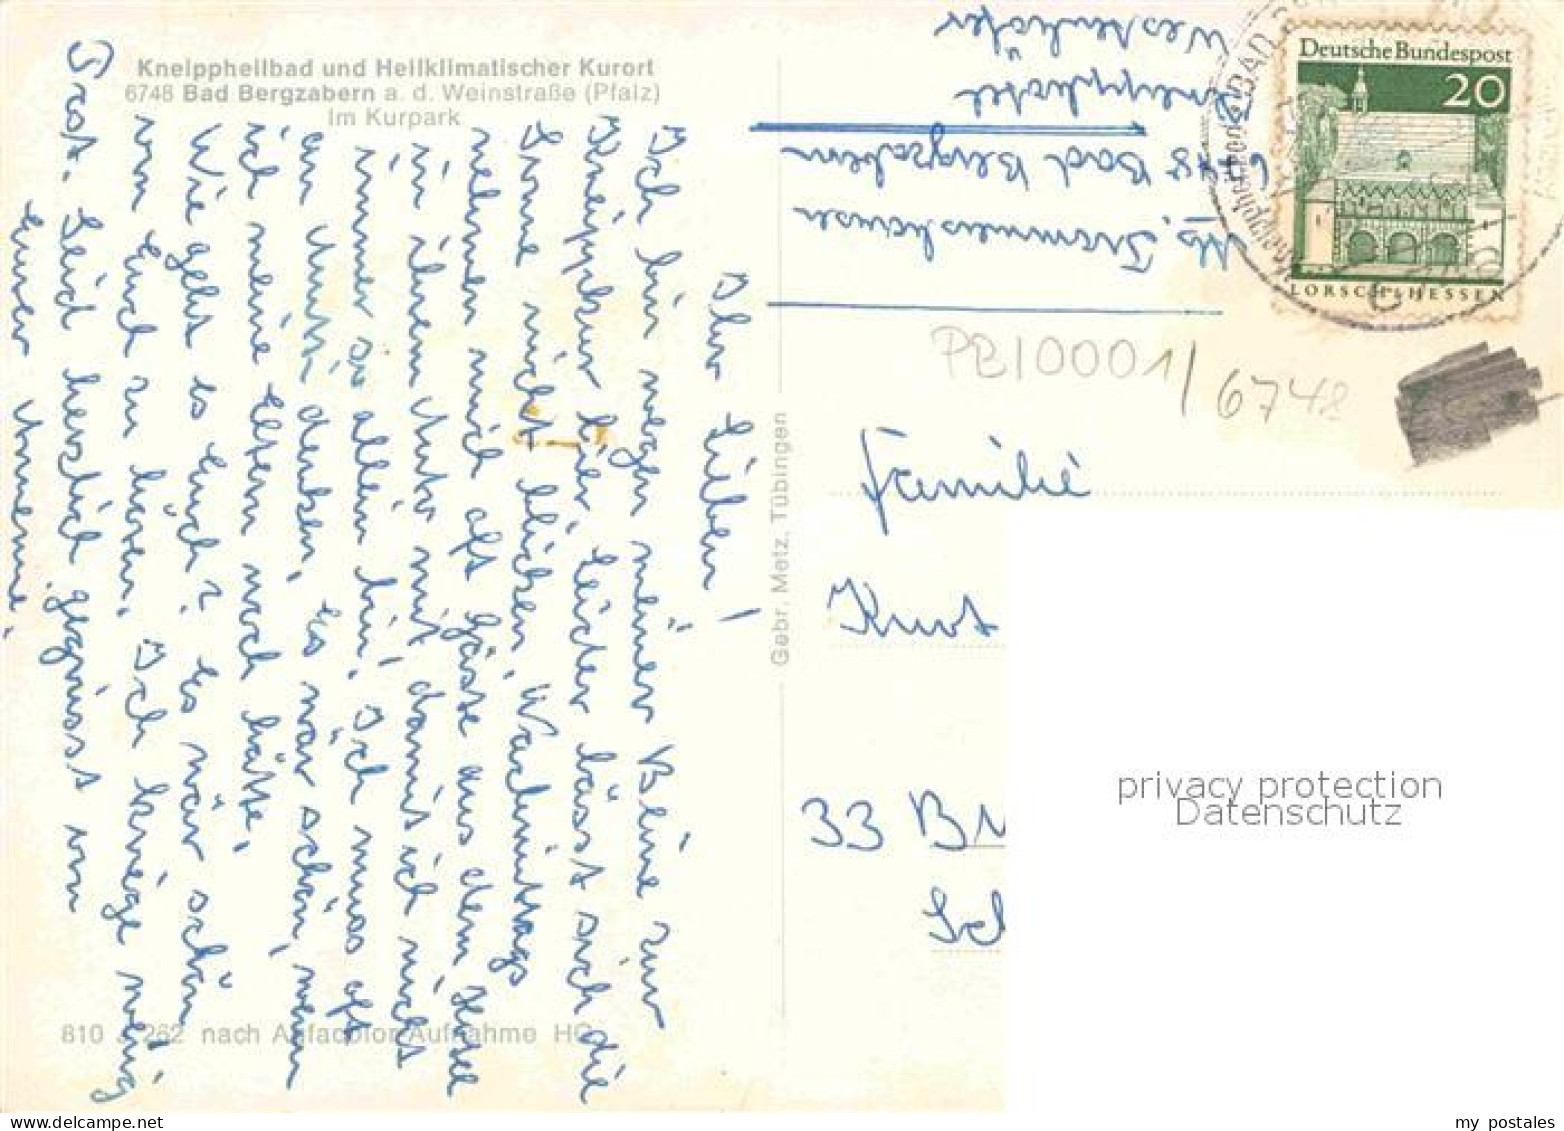 Kneippheilbad und Heilklimatischer Kurort
6748 Bad Bergzabern a. d. Weinstraße (Pfalz)
Im Kurpark
Ihr Lieben!
Ich bin wegen meiner Beine zur
Kneippkur hier. Leider lässt sich die
Sonne nicht blicken. Nachmittags
nehmen mich oft Gäste aus dem Hotel
in ihrem Auto mit, damit ich nicht
immer so allein bin. Ich muss oft
an Mutti denken. Es war schön, wenn
ich meine Eltern noch hätte.
Wie geht es Euch? Es wär schön
von Euch zu hören. Ich kriege wenig
Post. Seid herzlich gegrüsst von
Eurer Annemie.
810 262 nach Agfacolor-Aufnahme HC
Gebr. Metz, Tübingen
Kneipphotel
Westenhöfer
6748 Bad Bergzabern
Deutsche Bundespost
20
LORSCH/HESSEN
BAD
PB10001/6748
Familie
Kurt
33 Br
Sch
privacy protection
Datenschutz
my postales